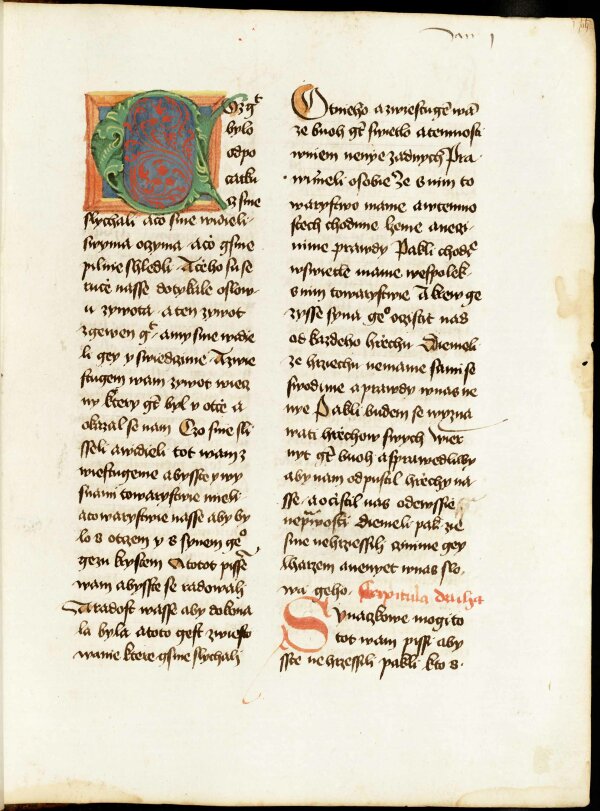 Cozgt
bylo
odpo
czatku
czsme
slychali aco sme widieli
swyma oczyma aco gsme
pilnie shledli Aczeho su se
rucze nasse dotykale oslow
u zywota aten zywot
zgewen gt amysme widie
li gey y swiedczime Azwie
stugem wam zywot wiecz
ny ktery gt byl v otcze a
okazal se nam Czo sme sli
sseli awidieli tot wam z
wiestugeme abysste y wy
snami towarystwie mieli
atowarystwie nasse aby by
lo s otczem y s synem geo
gezu krystem Atotot pisse
wam abysste se radowali
Aradost wasse aby dokona
la byla atoto gest zwiesto
wanie ktere gsme slychali
Otneho azwiestugem wam
ze buoh gt swietlo atemnosti
wniem nenye zadnych Pra
wimeli osobie ze s nim to
warystwo mame awtemno
stech chodime lzeme aneczi
nime prawdy Pakli chodie
wswietle mame wespolek
snim towarystwie A krew ge
zysse syna geo oczisstit nas
od kazdeho hrzechu Diemeli
ze hrzechu nemame sami se
swodime a prawdy wnas ne
nye Pakli budem se wyzna
wati hrzechow swych wier
nyt gt buoh asprawedliwy
aby nam odpustil hrzechy na
sse aocistil nas odewssie
neprawosti diemeli pak ze
sme nehrzessili czinime gey
lharzem anenyet wnas slo
wa geho Capitula druha
Synaczkowe mogi to
tot wam pissi aby
sste nehrzessili pakli kto s